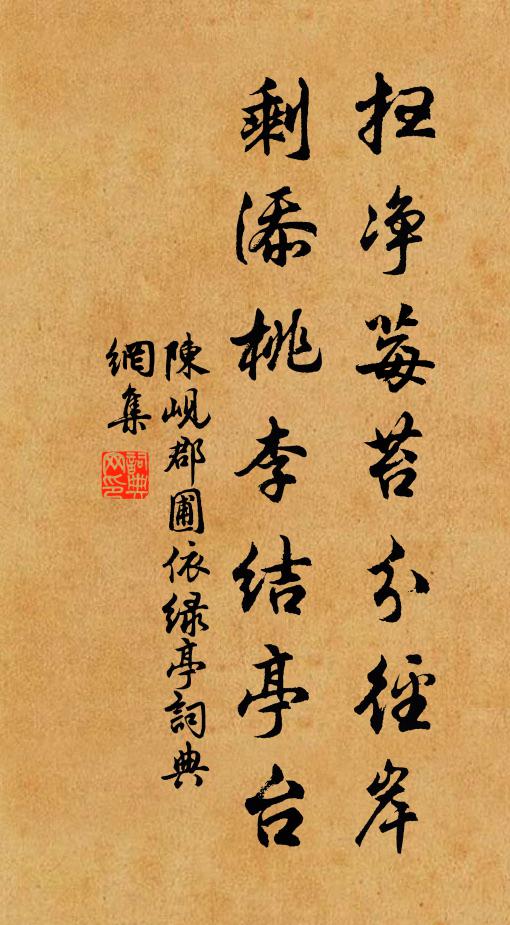 扫净莓苔分径岸
剩添桃李结亭台
陳峴郡圃依緑亭詞典
網集
詞典
网印